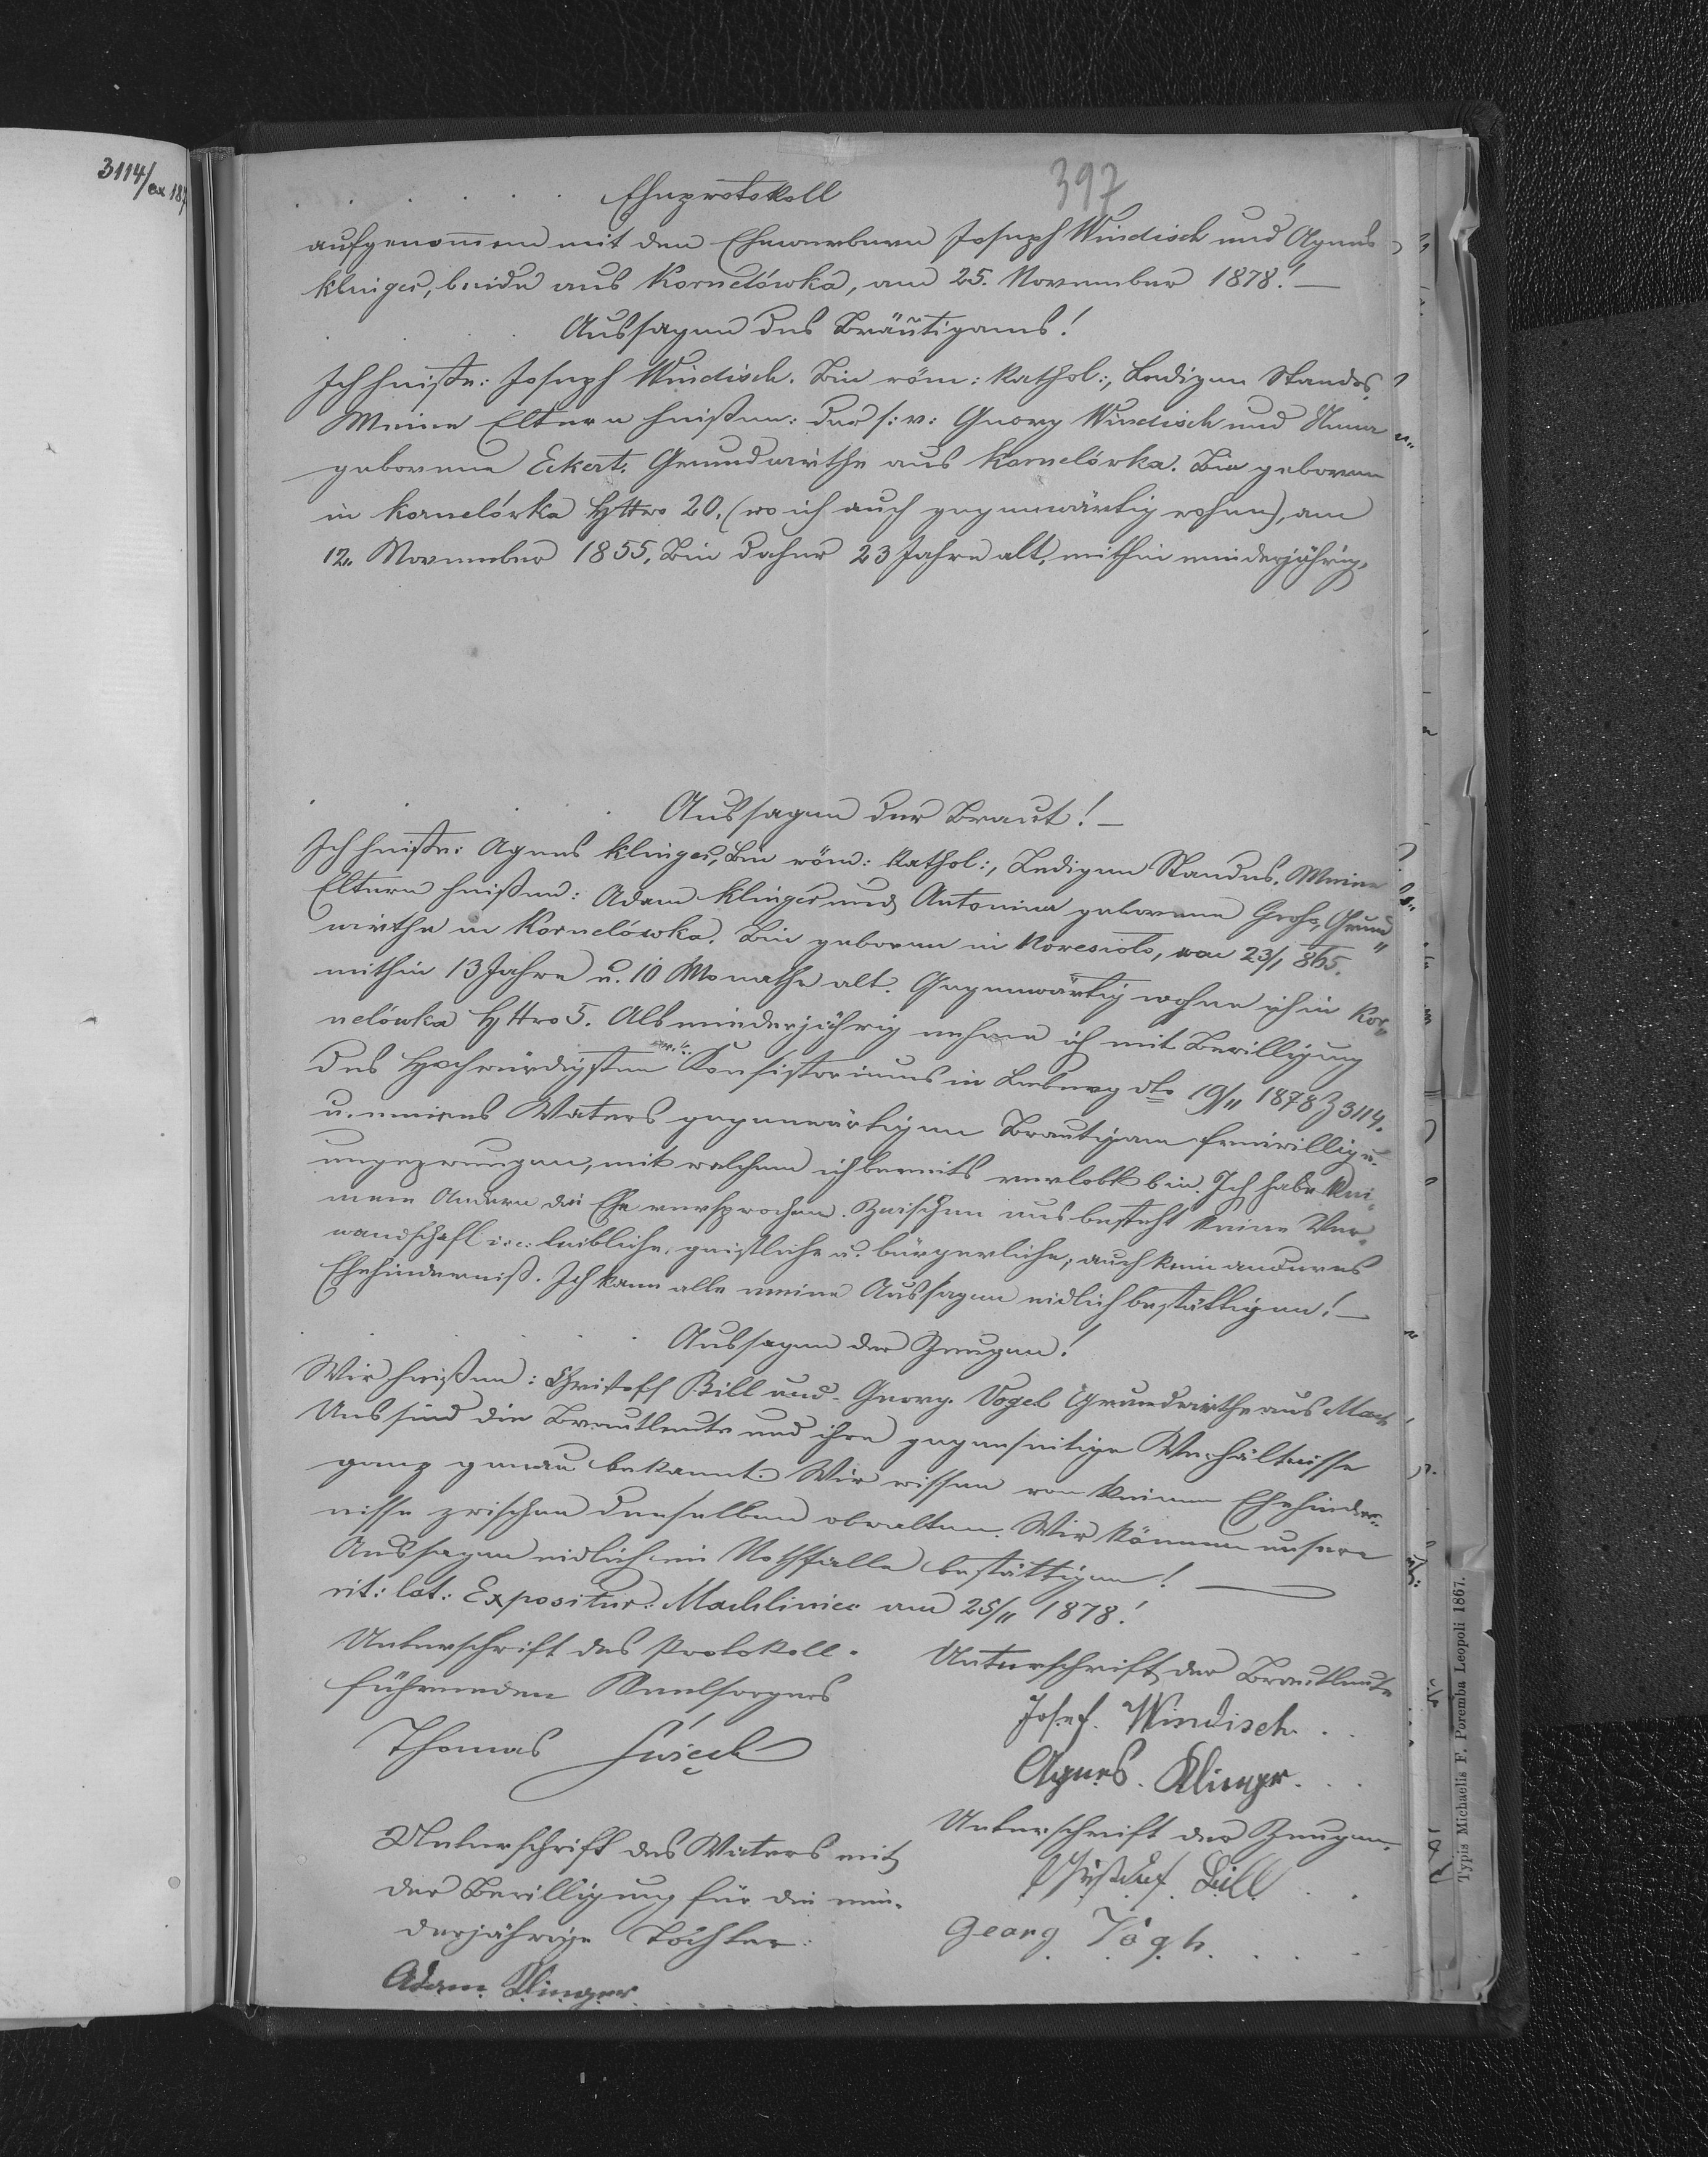 3114/ex 187
397
Eheprotokoll
aufgenommen mit den Ehewerbern Joseph Windisch und Agnes
Klinger, beide aus Kornelówka, am 25. November 1878!—
Aussagen des Bräutigams!
Ich heiße: Joseph Windisch. Bin röm: kathol:, Ledigen Standes.
Meine Eltern heißen: der s: v: Georg Windisch und Anna
geborene Eckert. Grundwirthe aus Kornelówka. Bin geboren
in Kornelówka HNro 20. (wo ich auch gegenwärtig wohne), am
12. November 1855. Bin daher 23 Jahre alt, mithin minderjährig,
Aussagen der Braut!—
Ich heiße: Agnes Klinger, Bin röm: kathol:, Ledigen Standes. Meine
Eltern heißen: Adam Klinger und Antonina geborene Grohs, Grund„
wirthe in Kornelówka. Bin geboren in Nowesioło, am 23/1 865.
mithin 13 Jahre u. 10 Monathe alt. Gegenwärtig wohne ich in Kor„
nelówka HNro 5. Als minderjährig nehme ich mit Bewilligung
des Hochwürdigsten Konsistoriums in Lemberg dto 19/11 1878 Z 3114.
u. meines Vaters gegenwärtigen Brautigam freiwillig u.
ungezwungen, mit welchem ich bereits verlobt bin. Ich habe kei„
nem Andern die Ehe versprochen. Zwischen uns besteht keine Ver„
wandschaft i: e: leibliche, geistliche u. bürgerliche; auch kein anderes
Ehehinderniß. Ich kann alle meine Aussagen eidlich bestättigen!—
Aussagen der Zeugen!
Wir heißen: Christoff Bill und Georg Vogel Grundwirthe aus Mach
Uns sind die Brautleute und ihre gegenseitige Verhältnisse
ganz genau bekannt. Wir wissen von keinem Ehehinder„
nisse zwischen denselben obwalten. Wir können unsere
Aussagen eidlich im Nothfalle bestättigen!—
rit: lat: Expositur: Machliniec am 25/11 1878!
Unterschrift des Protokoll-
führenden Seelsorgers
Thomas
Unterschrift der Brautleute
Josef Windisch
Agnes Klinger
Unterschrift des Vaters mit
der Bewilligung für die min-
derjährige Tochter:
Adam Klinger
Unterschrift der Zeugen
Bill
Georg
Typis Michaelis F. Poremba Leopoli 1867.